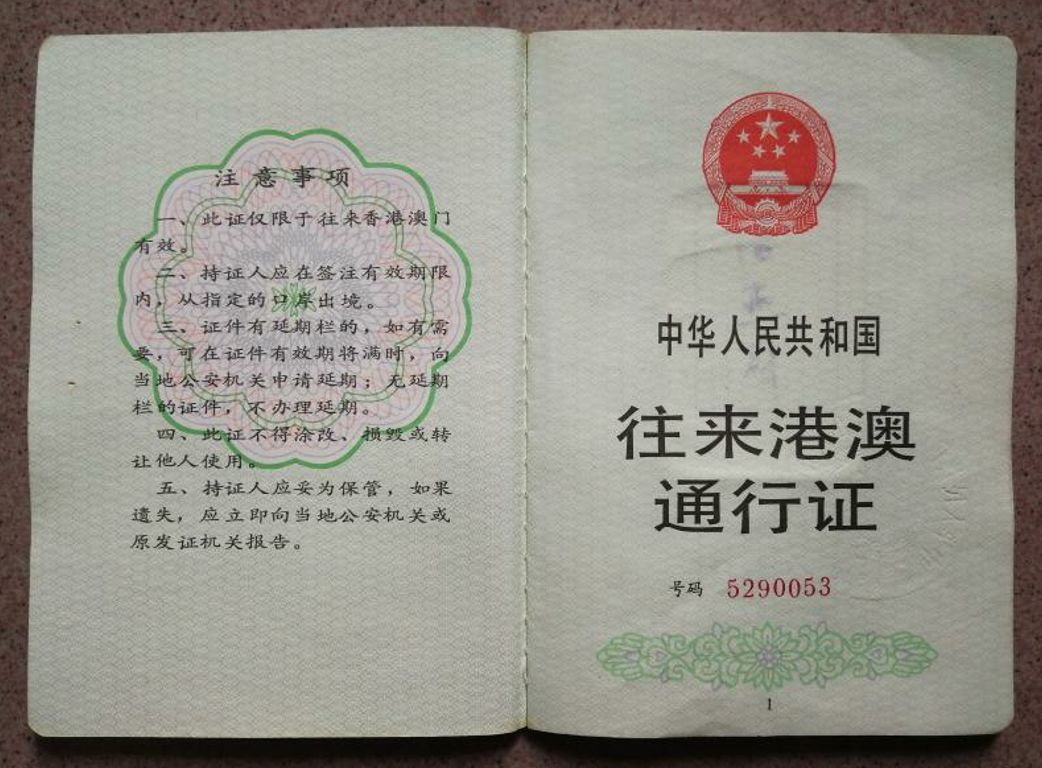 注意事项
一、此证仅限于往来香港澳门
有效。
二、持证人应在签注有效期限
内，从指定的口岸出境。
三、证件有延期栏的，如有需
要，可在证件有效期将满时，向
当地公安机关申请延期；无延期
栏的证件，不办理延期。
四、此证不得涂改、损毁或转
让他人使用。
五、持证人应妥为保管，如果
遗失，应立即向当地公安机关或
原发证机关报告。
中华人民共和国
往来港澳
通行证
号码 5290053
1